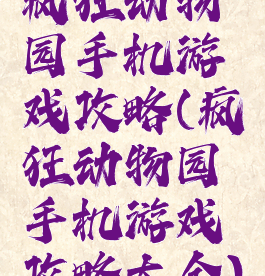 疯狂动物
园手机游
戏攻略(疯
狂动物园
手机游戏
攻略大全)